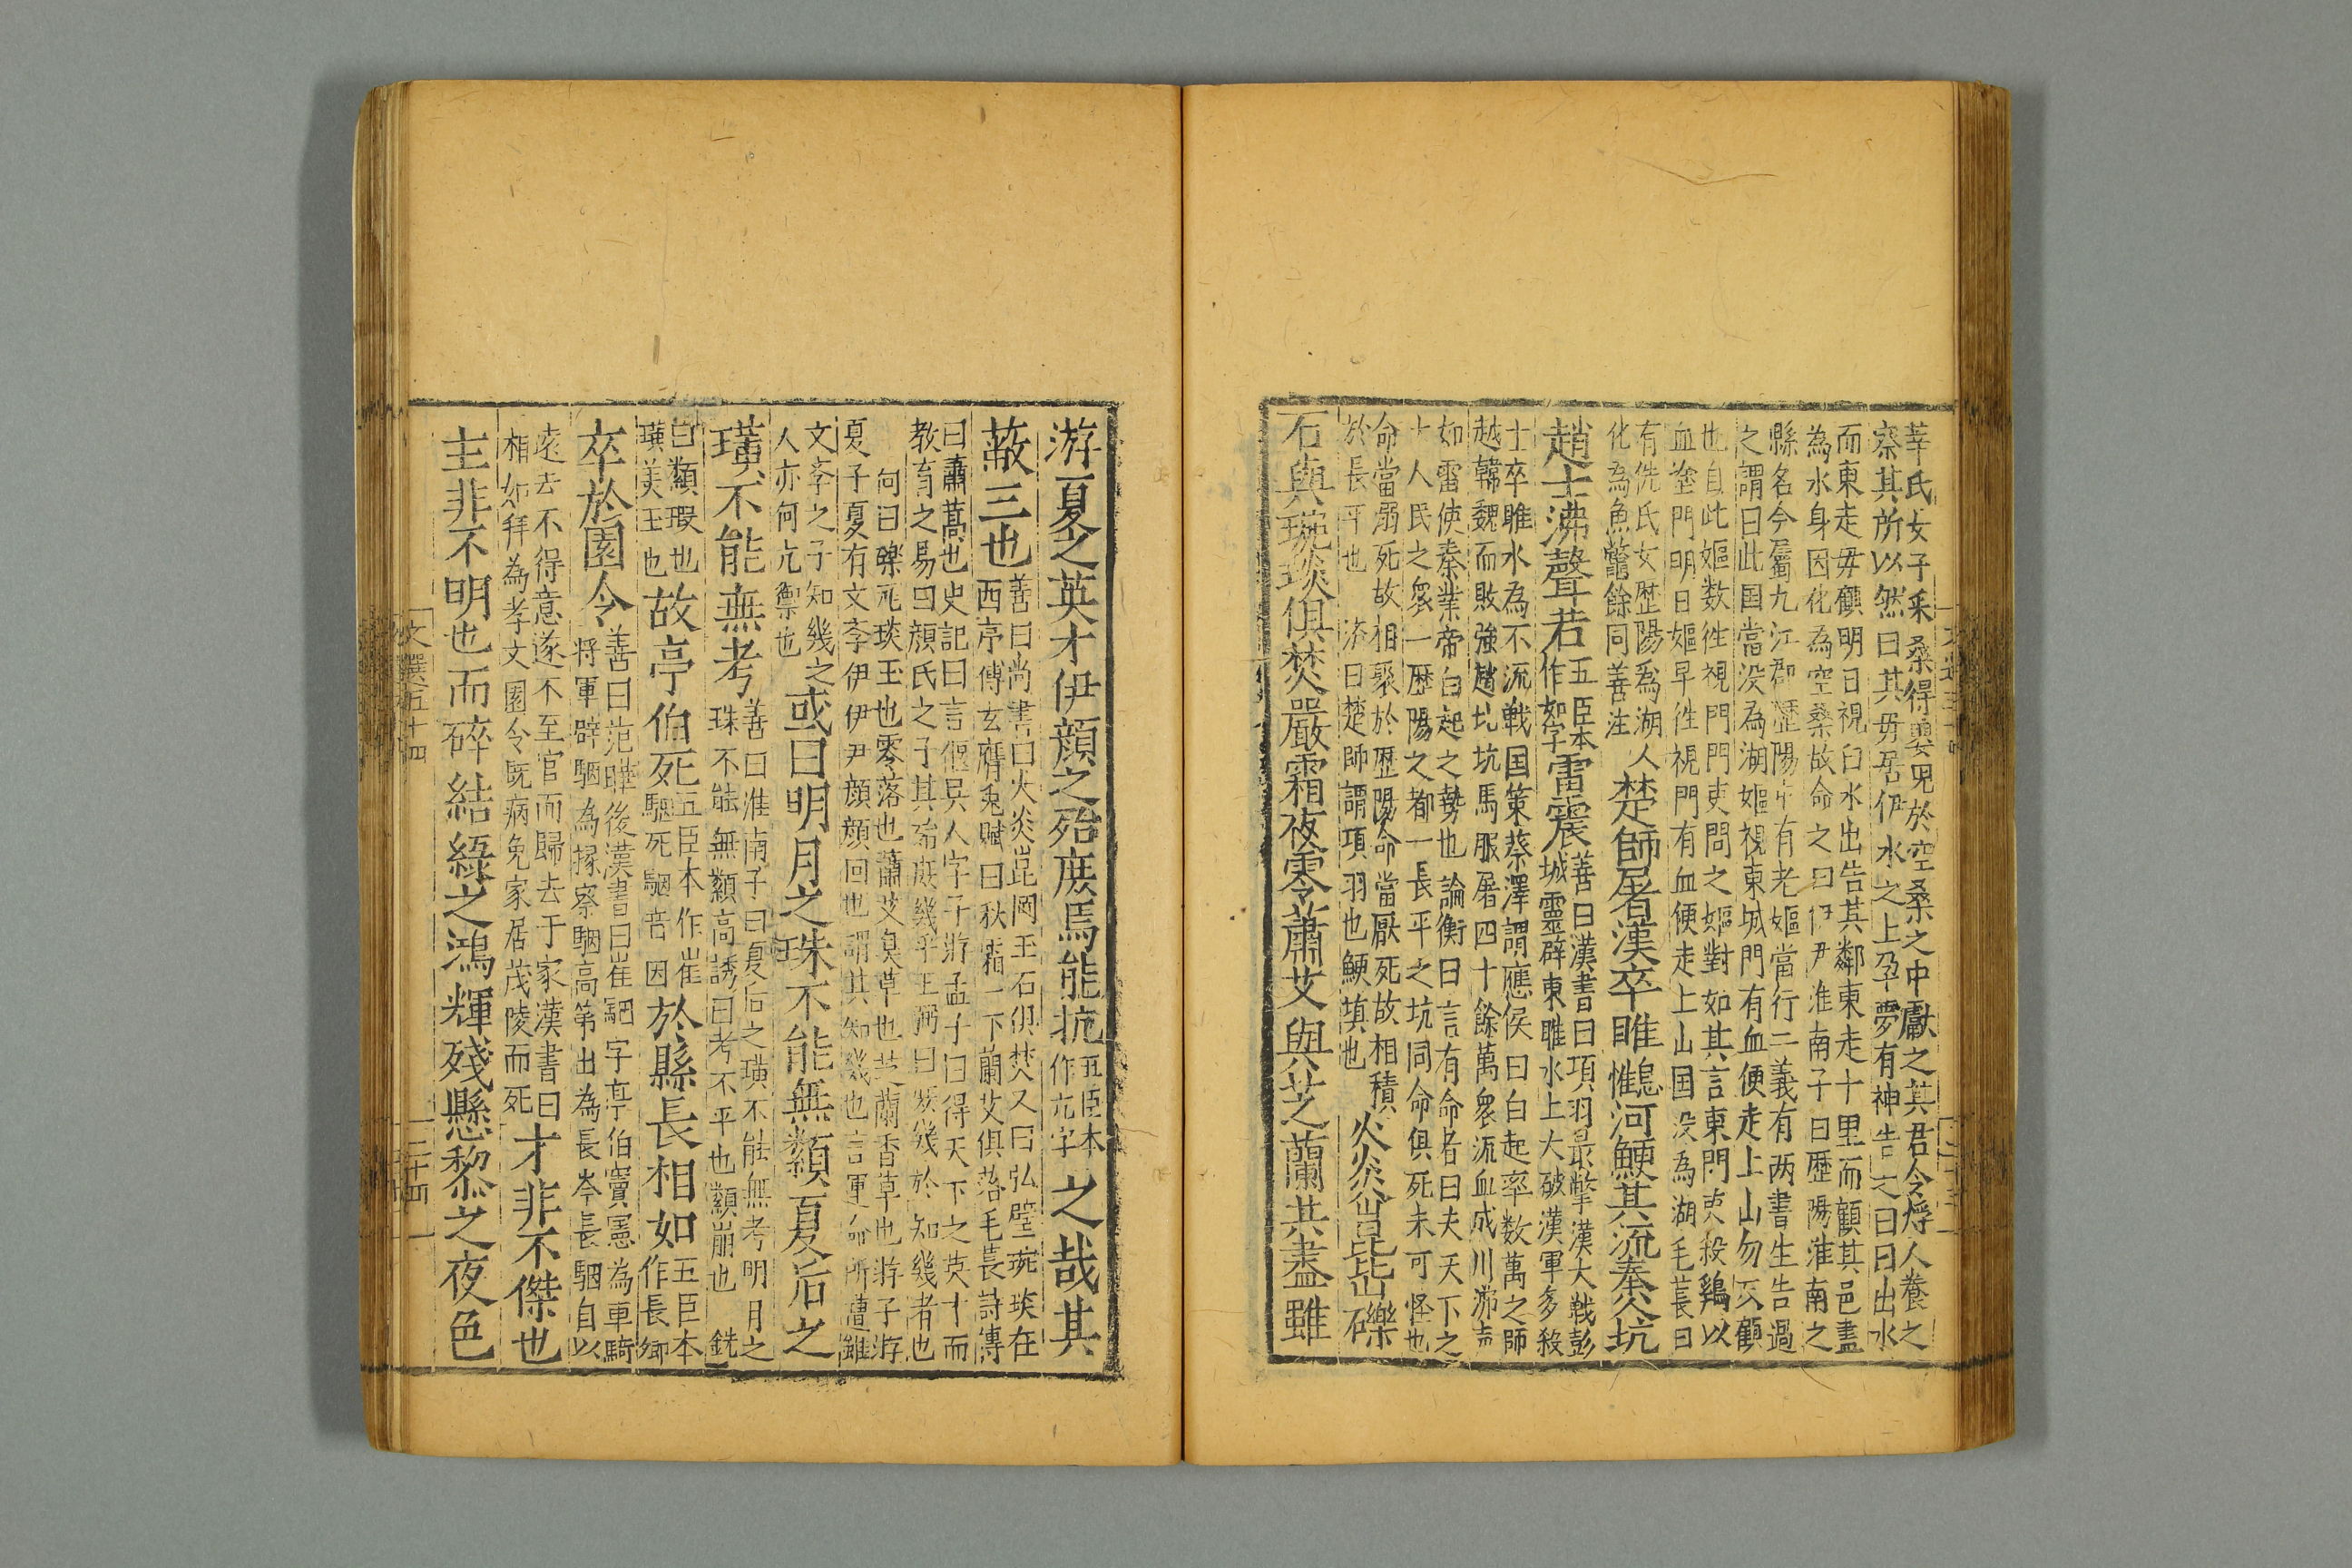 莘氏女子采桑得嬰児於空桑之中獻之其君令烰人養之
察其所以然曰其毋居伊水之上孕夢有神告之曰臼出水
而東走毋顧明日視臼水出告其鄰東走十里而顧其邑盡
為水身因化為空桑故命之曰伊尹淮南子曰歴陽淮南之
縣名今屬九江郡歴陽中有老嫗常行仁義有两書生告過
之謂曰此国當没為湖嫗視東城門有血便走上山勿反顧
也自此嫗数徃視門門吏問之嫗對如其言東門吏殺鷄以
血塗門明日嫗早徃視門有血便走上山国没為湖毛萇曰
有侁氏女歴陽為湖人
化為魚鼈餘同善注
楚師屠漢卒睢鯢惟河鯁其流秦人坑
趙士沸聲若
五臣本
作如字
雷震
善曰漢書曰項羽晨擊漢大戰彭
城靈辟東睢水上大破漢軍多殺
士卒睢水為不流戦国策蔡澤謂應侯曰白起率数萬之師
越韓魏而敗強趙北坑馬服屠四十餘萬衆流血成川沸声
如雷使秦業帝白起之勢也論衡曰言有命者曰夫天下之
大人民之衆一歴陽之都一長平之坑同命俱死未可怪也
命當溺死故相聚於歴陽命當厭死故相積
於長平也 済曰楚師謂項羽也鯁填也
火炎崑崑礫
石與琬琰俱焚嚴霜夜零蕭艾與芝蘭共盡雖
游夏之英才伊顔之殆庶焉能抗
五臣本
作亢字
之哉其
蔽三也
善曰尚書曰火炎崑岡玉石俱焚又曰弘璧琬琰在
西序傅玄鷹兎賦曰秋霜一下蘭艾俱落毛萇詩傳
曰蕭蒿也史記曰言偃吳人字子游孟子曰得天下之英才而
教育之易曰顔氏之子其殆庶幾乎王弼曰庶幾於知幾者也
向曰礫瓦琰玉也零落也蕭艾臭草也芝蘭香草也游子游
夏子夏有文斈伊伊尹顔顔回也謂其知幾也言運命所遭雖
文斈之子知幾之
人亦何亢禦也
或曰明月之珠不能無纇夏后之
璜不能無考
善曰淮南子曰夏后之璜不能無考明月之
珠不能無纇高誘曰考不平也纇崩也 銑
曰纇瑕也
璜美玉也
故亭伯死
五臣本作崔
駰死駰音因
於縣長相如
五臣本
作長卿
卒於園令
善曰范曄後漢書曰崔駰字亭伯竇憲為車騎
将軍辟駰為掾察駰高第出為長岑長駰自以
遠去不得意遂不至官而歸去于家漢書曰
相如拜為孝文園令旣病免家居茂陵而死
才非不傑也
主非不明也而碎結綠之鴻輝殘懸黎之夜色
文選五十四
二十四